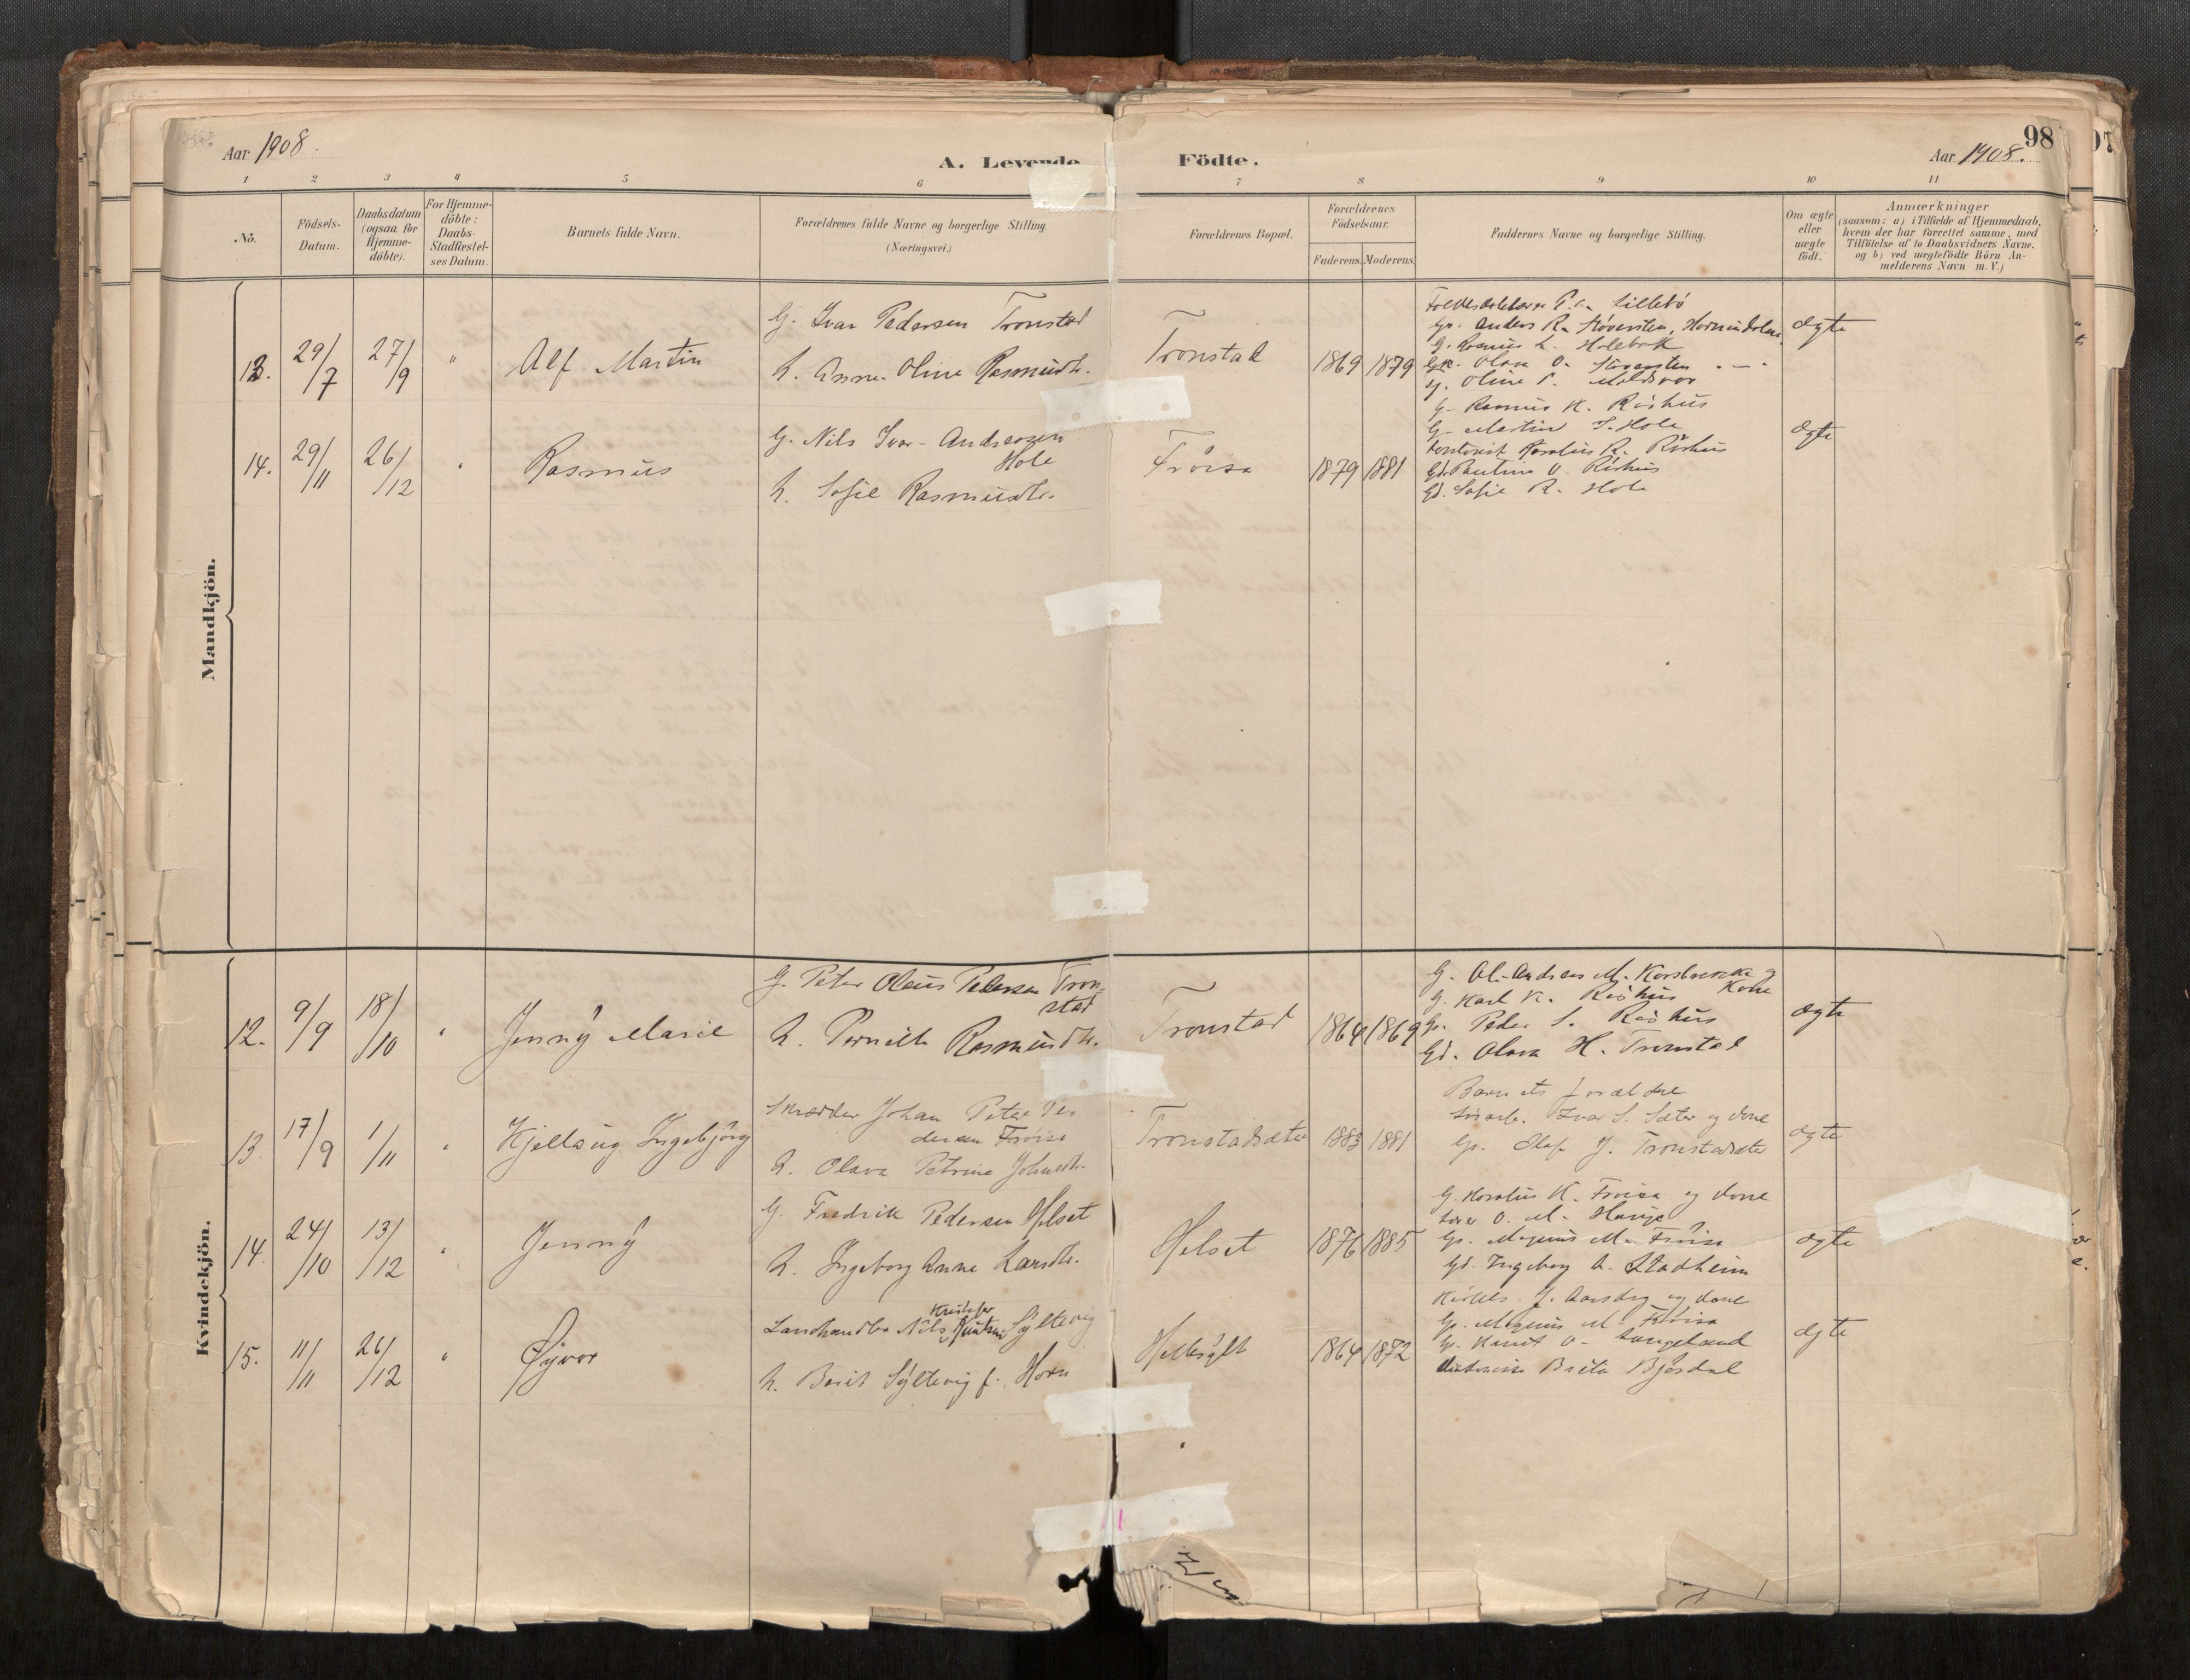 98
Aar 1908.
A. Levende Födte.
Aar 1908.
1 2 3 4 5 6 7 8 9 10 11
No.
Födsels-Datum.
Daabsdatum (ogsaa for Hjemme-döbte).
For Hjemme-döbte: Daabs-Stadfæstel-ses Datum.
Barnets fulde Navn.
Forældrenes fulde Navne og borgerlige Stilling. (Næringsvei.)
Forældrenes Bopæl.
Forældrenes Födselsaar.
Faderens. Moderens.
Faddernes Navne og borgerlige Stilling.
Om ægte eller uægte født.
Anmærkninger
(saasom: a) i Tilfælde af Hjemmedaab,
hvem der har forrettet samme, med
Tilföielse af to Daabsvidners Navne.
og b) ved uægtefödte Börn An-
melderens Navn m.V.)
Mandkjön.
13. 29/7 27/9 " Alf Martin
G. Ivar Pedersen Tronstad
h. Anne Oline Rasmusdtr.
Tronstad 1869 1879
P. Lillebö
Anders R. Hornindalen
G. Rasmus L. Holebak
Gk. Olava O.
Oline P.
ægte
14. 29/11 26/12 " Rasmus
G. Nils Ivar Andreasen
Hole
h. Sofie Rasmusdtr.
Fröisa 1879 1881
G. Rasmus K. Röshus
G. Martin S. Hole
Karolius R. Röshus
Gd. Pauline O. Röshus
Gd. Sofie R. Hole
ægte
Kvindekjön.
12. 9/9 18/10 " Jenny Marie
G. Peter Olaus Pedersen Tron-
stad
h. Pernille Rasmusdtr.
Tronstad 1864 1869
G. Ol. Andreas M. Korsbrekke og
Kone
G. Karl K. Röshus
Gs. Peder S. Röshus
Gd. Olava H. Tronstad
ægte
13. 17/9 1/11 " Kjellaug Ingebjörg
Skrædder Johan Peter Pe-
dersen Fröisa
h. Olava Petrine Johnsdtr.
Tronstadsæter 1883 1881
Barnets forældre
Ivar S. Sæter og kone
Gs. Olaf J. Tronstadsæter
ægte
14. 24/10 13/12 " Jenny
G. Fredrik Pedersen Helset
h. Ingeborg Anne Larsdtr.
Helset 1876 1885
G. Karolius K. Fröisa og kone
O. M. Hauge
Gs. Magnus M. Fröisa
Gd. Ingeborg A. Stadheim
ægte
15. 11/11 26/12 " Øyvor
Kristofer
Landhandler Nils Knutsen Syltevig
h. Berit Syltevig f. Horn
Hellesylt 1864 1872
J. Aarsdog og kone
Gs. Magnus M. Fröisa
G. Knut O. Langeland
Brita Bjørdal
ægte